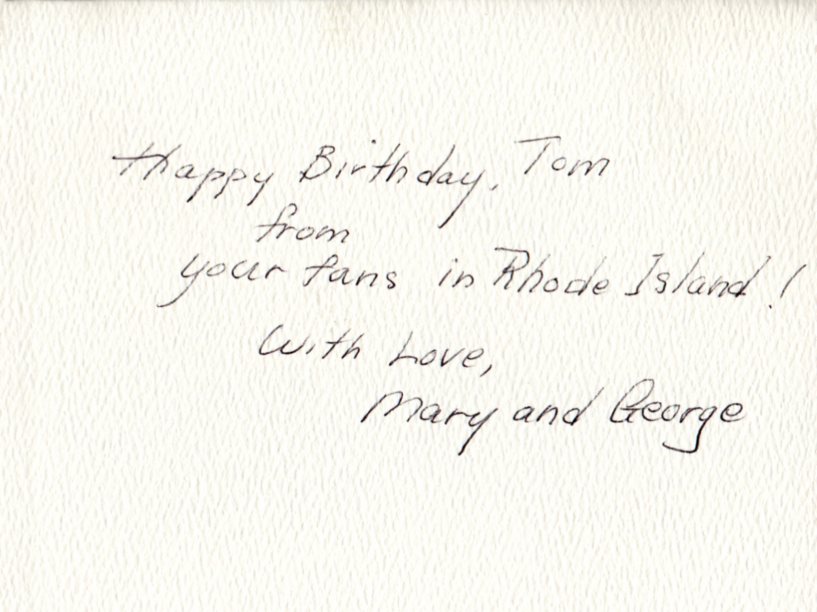 Happy Birthday, Tom
from
your fans in Rhode Island!
With Love,
Mary and George